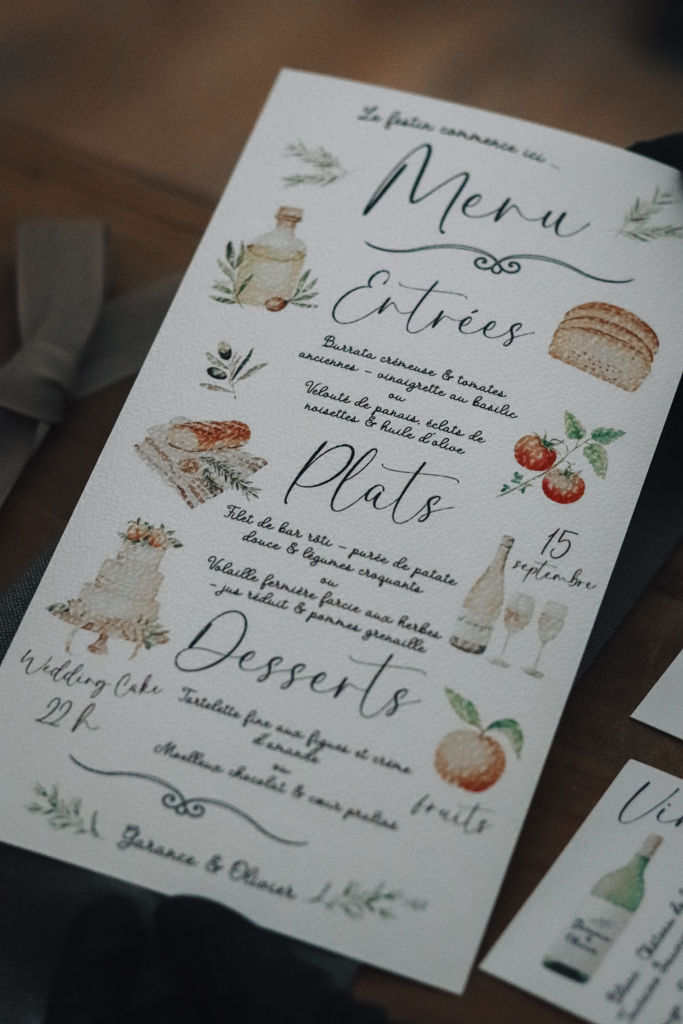 Le festin commence ici ...
Menu
Entrées
Burrata crémeuse & tomates
anciennes – vinaigrette au basilic
ou
Velouté de panais, éclats de
noisettes & huile d'olive
Plats
15
septembre
Filet de bar rôti – purée de patate
douce & légumes croquants
ou
Volaille fermière farcie aux herbes
– jus réduit & pommes grenaille
Desserts
Wedding Cake
22 h
Tartelette fine aux figues et crème
d'amande
ou
Moelleux chocolat & cœur praliné
fruits
Garance & Olivier
Blanc Château de